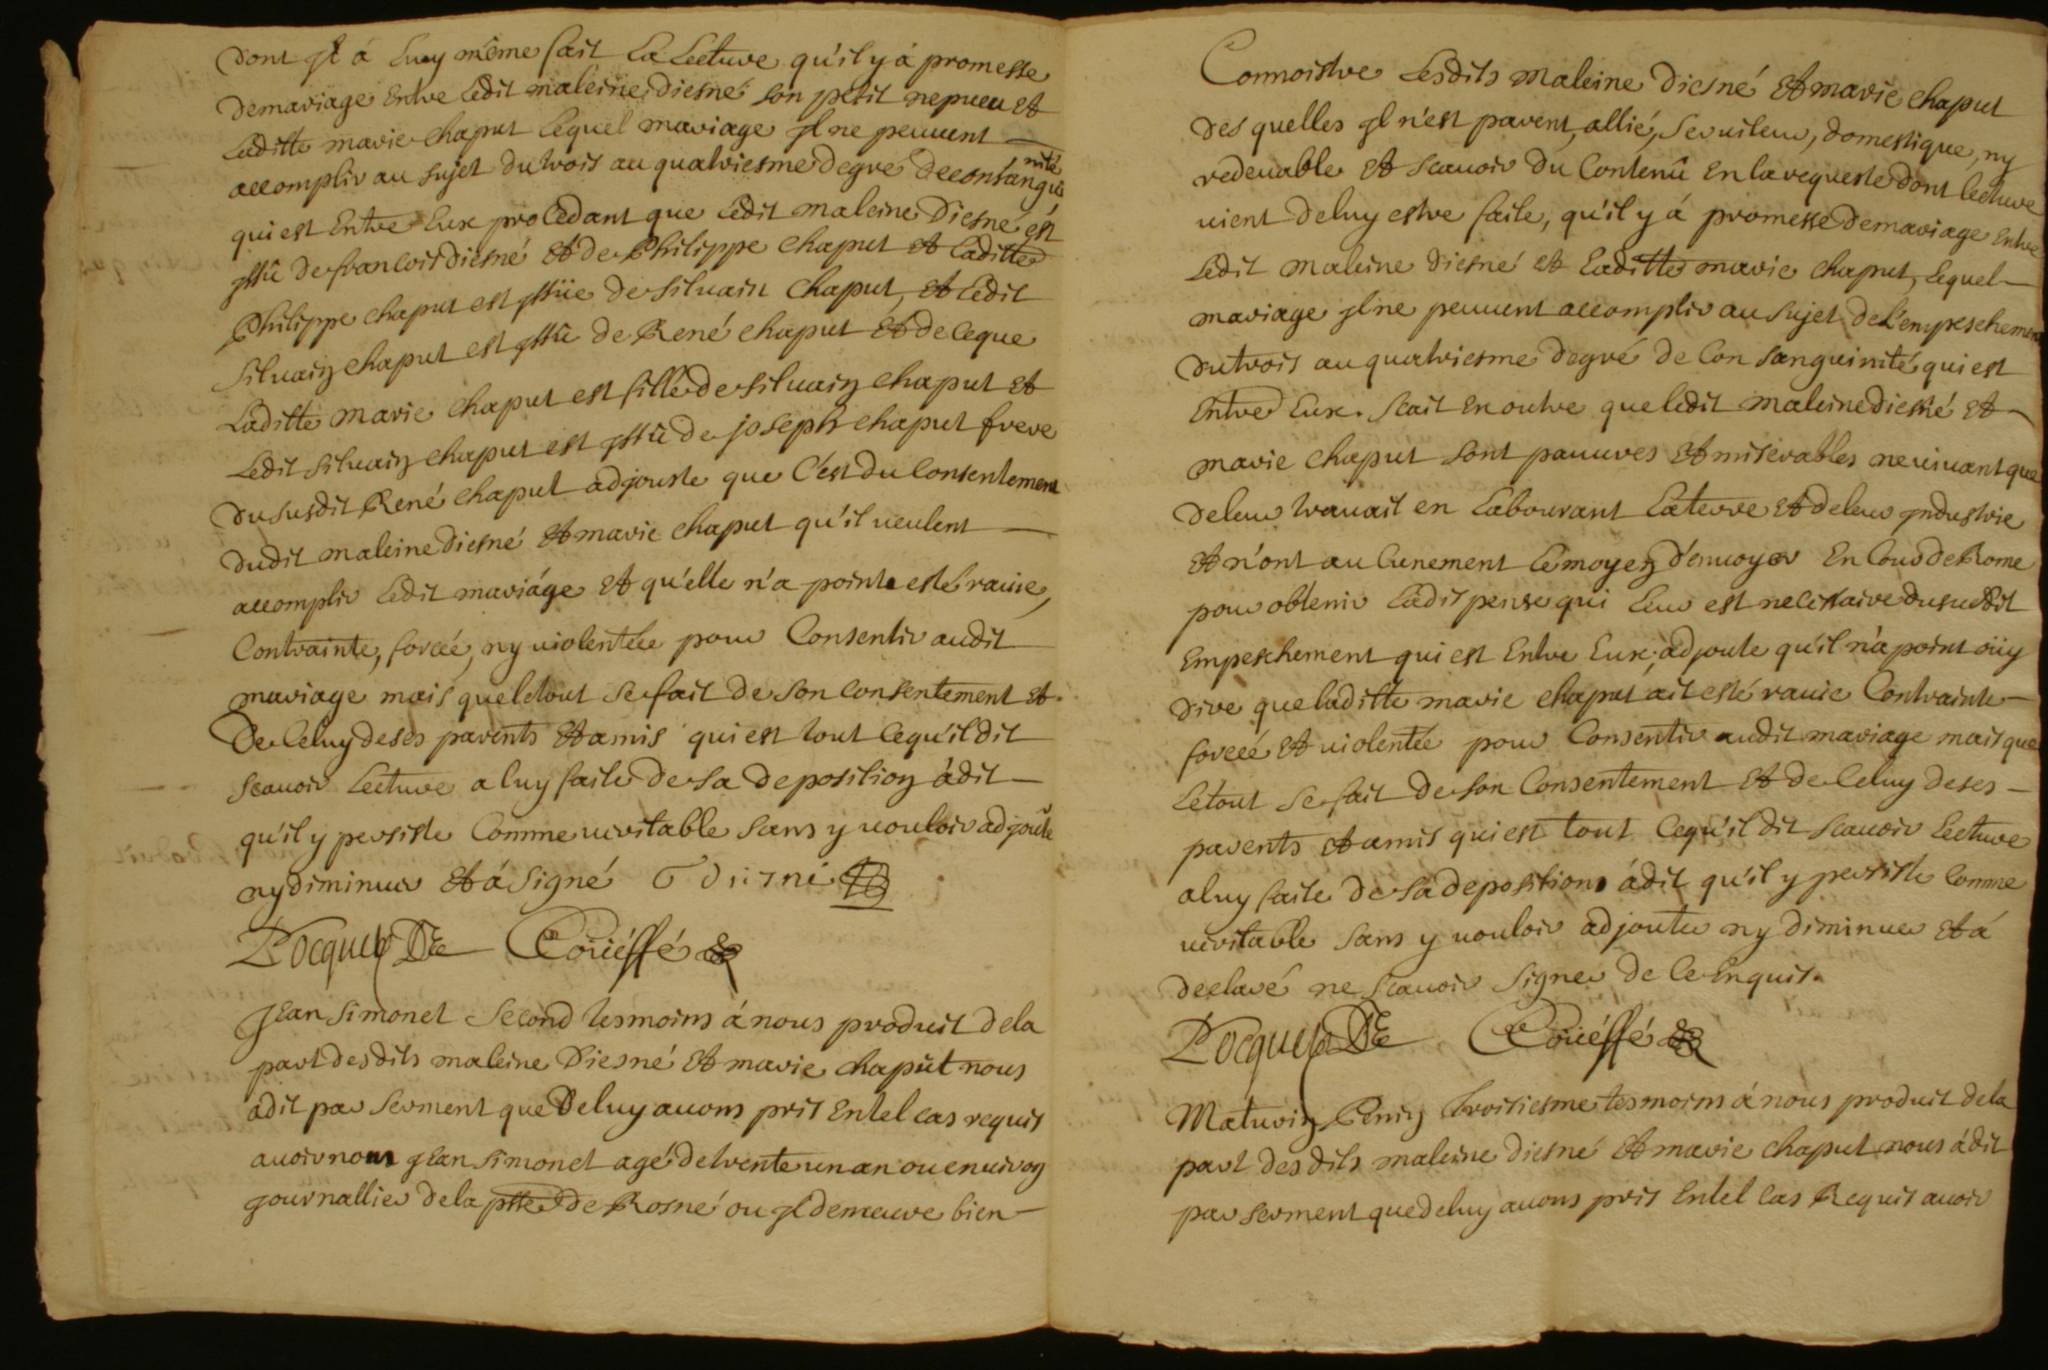 dont jl á luy même fait la lecture qu'il y á promesse
de mariage Entre ledit maleine diesné son petit nepueu et
laditte marie chaput lequel mariage jl ne peuuent
accomplir au sujet du trois au quatriesme degré de consangui
nité
qui est Entre Eux procedant que ledit maleine diesné est
jssû de francois diesné et de Philippe chaput et laditte
Philippe chaput est jssüe de siluain chaput, et ledit
siluain chaput est jssû de René chaput et de ce que
laditte marie chaput est fille de siluain chaput et
ledit siluain chaput est jssû de joseph chaput frere
du susdit René chaput adjouste que c'est du consentement
dudit maleine diesné et marie chaput qu'il ueulent
accomplir ledit mariáge et qu'elle n'a pointe esté rauie,
Contrainte, forcéé, ny uiolentéée pour Consentir audit
mariage mais que le tout se fait de son consentement et
De Celuy de ses parents et amis qui est tout ce qu'il dit
scauoir Lecture a luy faite de sa deposition à dit
qu'il y persiste Comme ueritable sans y uouloir adjoute
ny diminuer et á signé diesné
Pocquet DE Coriéffé
Jean Simonet second tesmoins á nous produit de la
part desdits maleine diesné et marie chapüt nous
a dit par serment que De luy auons pris En tel cas requis
auoir nom jean simonet agé de trente un an ou enuiron
journallier de la psse de Rosné ou jl demeure bien
Connoistre lesdits maleine diesné et marie chaput
des quelles jl n'est parent, allié, seruiteur, domestique, ny
redeuable et scauoir du Contenû En la requeste dont lecture
uient de luy estre faite, qu'il y á promesse de mariage Entre
ledit maleine diesné et laditte marie chaput, lequel
mariage jl ne peuuent accomplir au sujet de l'empeschement
du trois au quatriesme degré de Consanguinité qui est
Entre Eux. scait En outre que ledit maleine diesné et
marie chaput sont pauures et miserables ne uiuant que
de leur trauail en labourant la terre et de leur jndustrie
et n'ont aucunement le moyen d'enuoyer En Cour de Rome
pour obtenir la dispense qui leur est necessaire du susdit
Empeschement qui est Entre Eux, adjoute qu'il n'a point oüy
dire que laditte marie chaput ait esté rauie Contrainte
forcéé et uiolentée pour Consentir audit mariage mais que
le tout se fait de son Consentement et de Celuy de ses
parents et amis qui est tout ce qu'il dit scauoir lecture
a luy faite de sa deposition á dit qu'il y persiste Comme
ueritable sans y uouloir adjouter ny diminuer et á
declaré ne scauoir signer de ce Enquis.
Pocquet DE Coriéffé
Maturin Penin troisiesme tesmoins á nous produit de la
part desdits maleine diesné et marie chaput nous á dit
par serment que de luy auons pris En tel cas Requis auoir